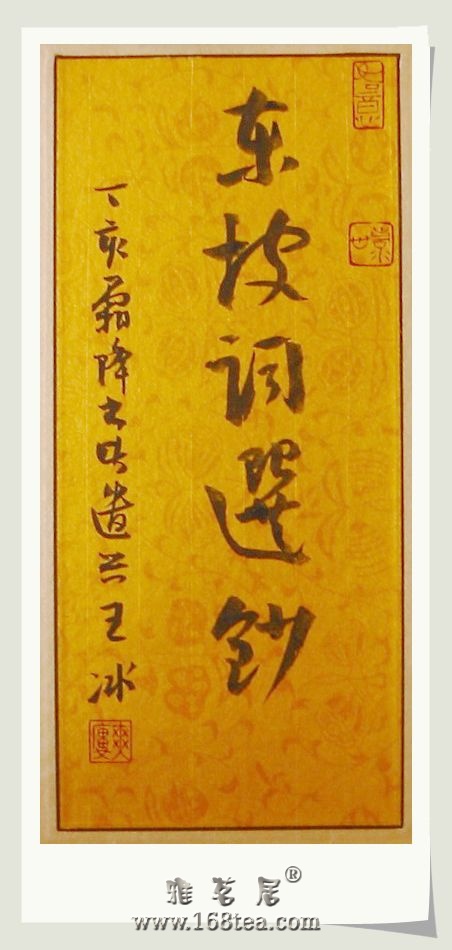 东坡詞選鈔
丁亥霜降书遣兴王冰
雅茗居®
www.168tea.com